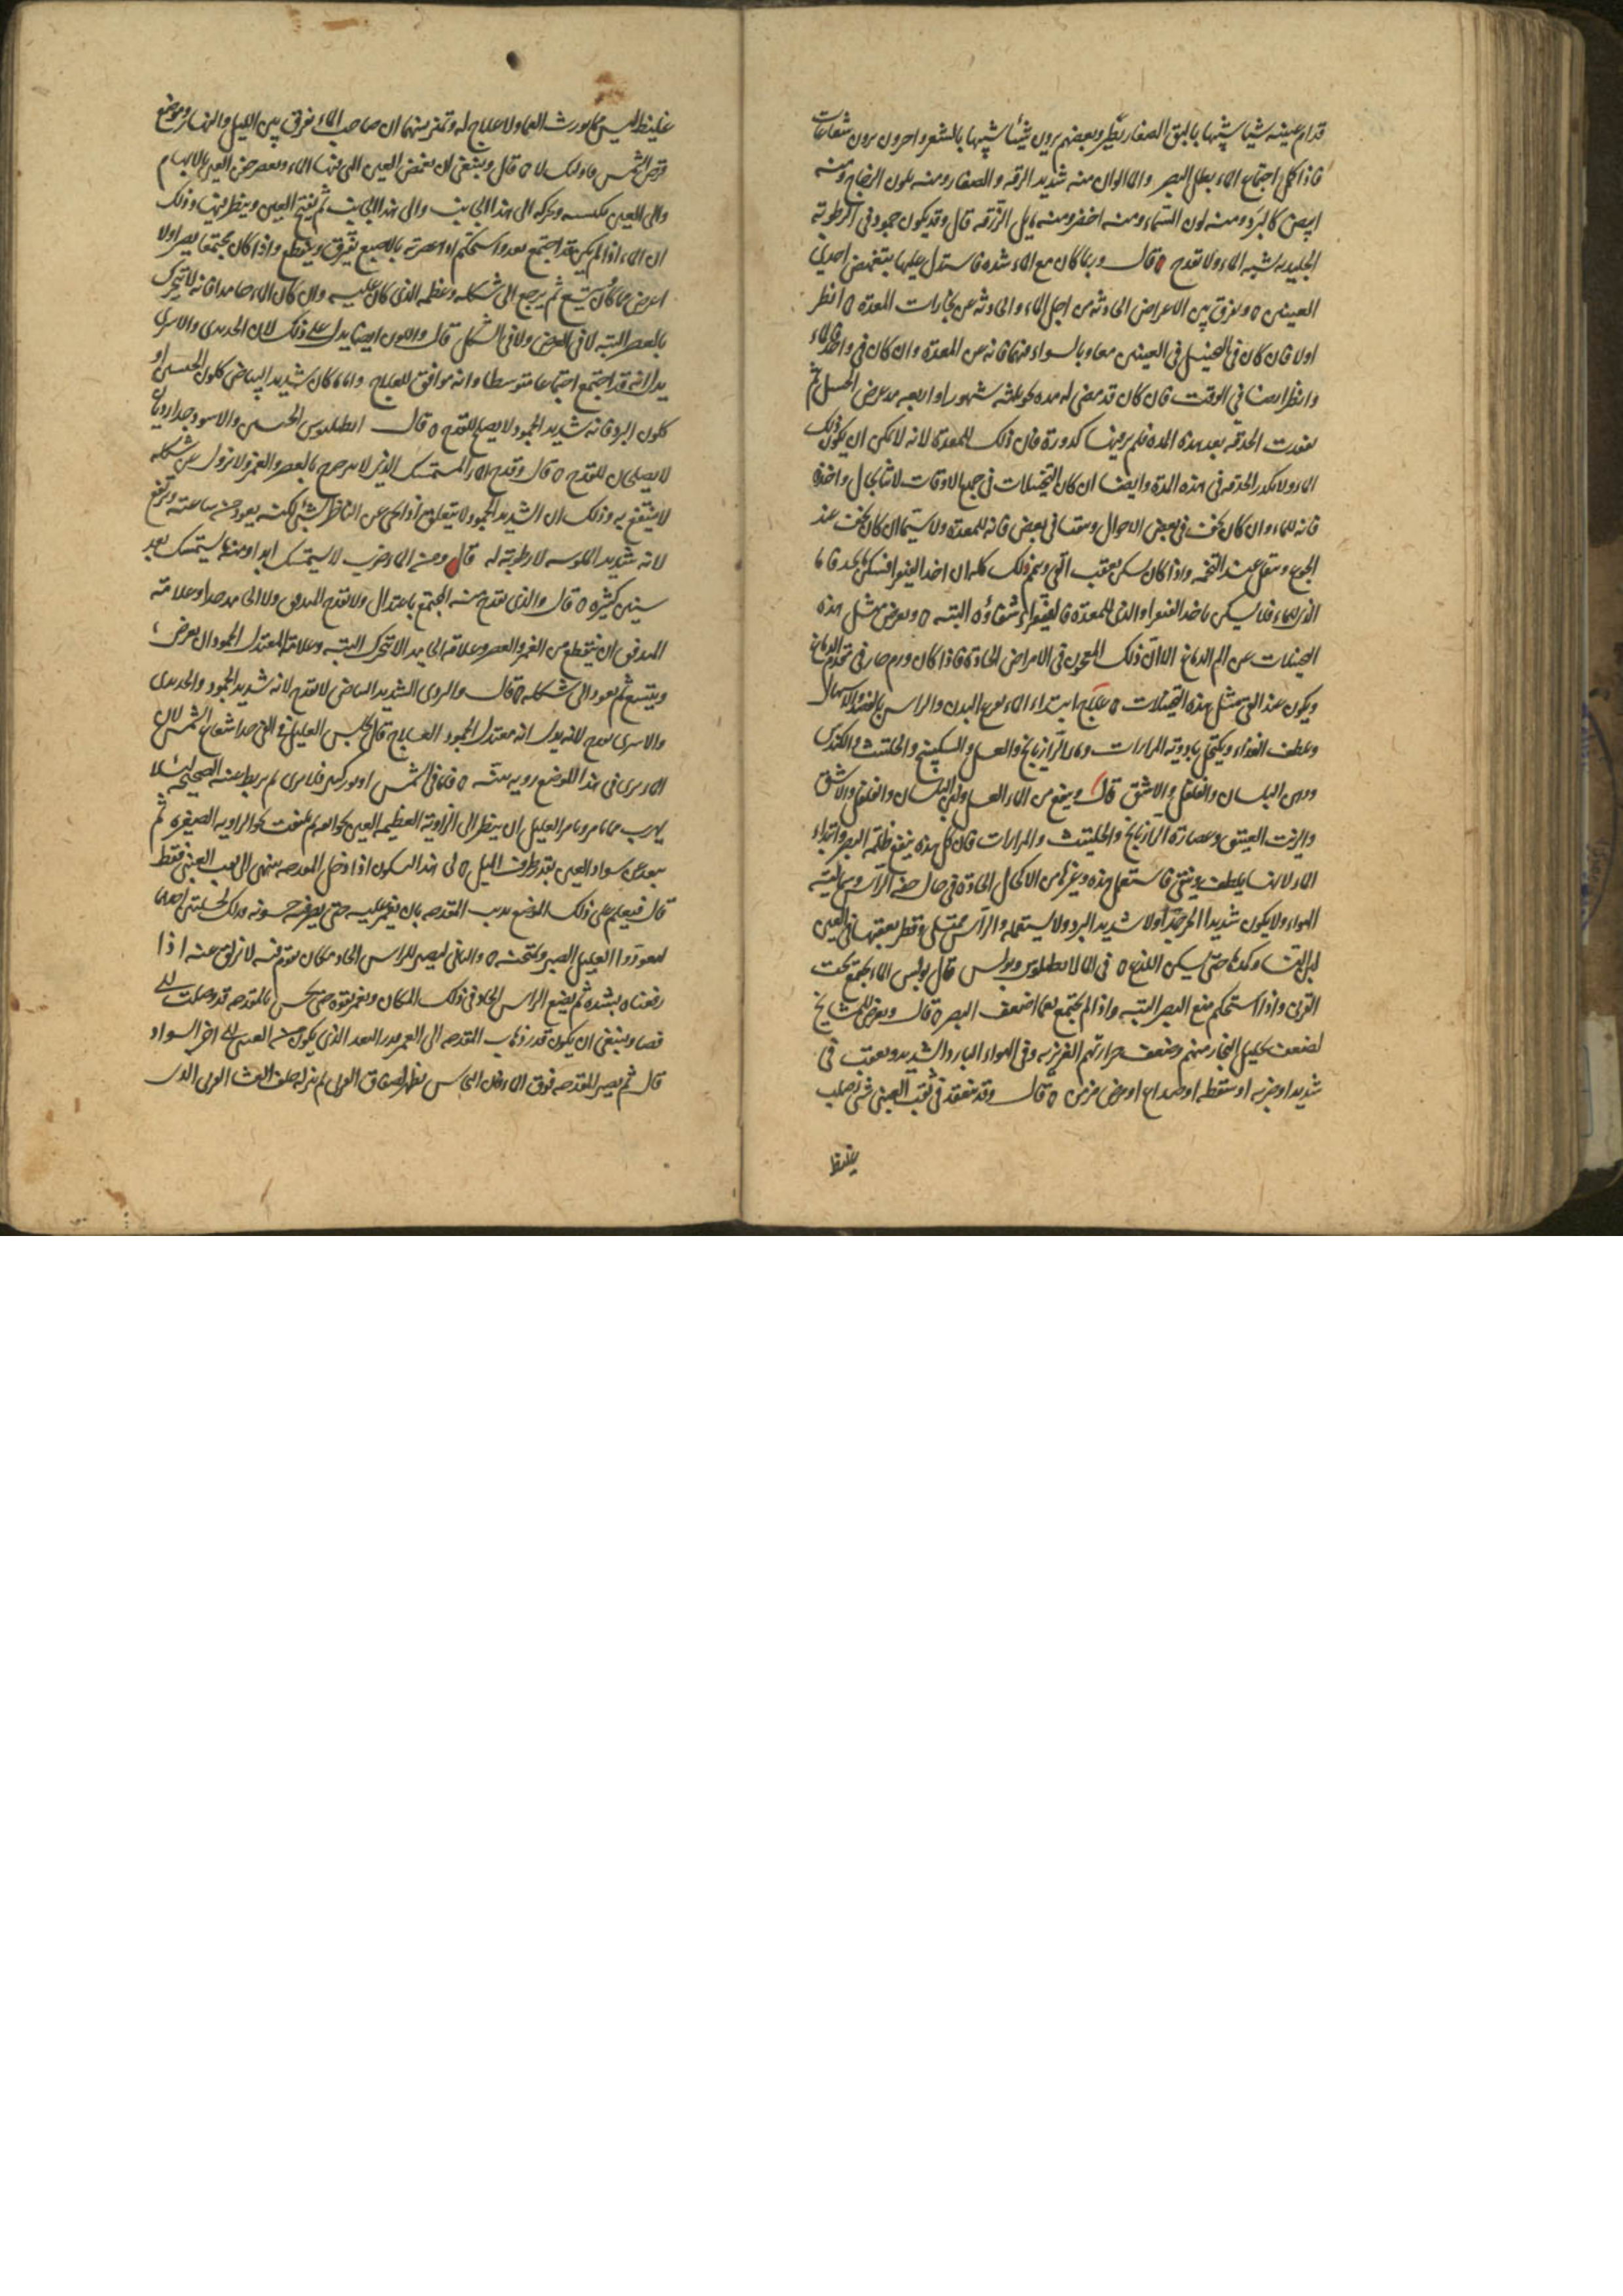 قدام عينيه شيئا شبيها بالبق الصغار يطير وبعضهم يرون شيئا شبيها بالشعر واخرون يرون شعاعات
فاذا كمل اجتماع الماء بطل البصر واما الوان منه شديد الزرقه والصفا ومنه بلون الزجاج ومنه
ابيض كالبرد ومنه لون السماء ومنه اخضر ومنه مايل الزرقه قال وقد يكون جمود في الرطوبة
الجليديه شبه الماء ولا تقدح قال وربما كان مع الماء سده فاستدل عليها بتغميض احدى
العينين ه ونفرق بين الاعراض الحادثه من اجل الماء والحادثه عن بخارات المعدة ه انظر
اولا فان كان في التخيل في العينين معا وبالسواء فيهما فانه عن المعدة وان كان في واحد فللماء
وانظر ايضا في الوقت فان كان قد مضى له مده نحو ثلثه شهور او اربعه مذ عرض التخيل ثم
تفقدت الحدقه بعد هذه المده فلم تر فيها كدورة فان ذلك للمعدة لانه لا يمكن ان يكون ذلك
الماء ولا تكدر الحدقه في هذه المدة وايضا ان كان التخيلات في جميع الاوقات لاثبا بحال واحدة
فانه للماء وان كان يخف في بعض الاحوال وتثقل في بعض فانه للمعدة ولا سيما ان كان يخف عند
الجوع وتثقل عند التخمه واذا كان يسكن بعقب القي وتمم ذلك كله ان اخذ الفيقرا فسكن البته فاما
الذي للماء فلا يسكن باخذ الفيقرا والذي للمعدة فالفيقرا شفاؤه البته ه ويعرض مثل هذه
التخيلات عن الم الدماغ الا ان ذلك يكون في الامراض الحادة فاذا كان ورم حار في مقدم الدماغ
ويكون عند القي مثل هذه التخيلات ه علاج ابتداء الماء تفرغ البدن والراس بالفصد والاسهال
وتلطف الغذاء ويكتحل بادوية المرارات وماء الرازيانج والعسل والسكبينج والحلتيت والكندس
ودهن البلسان والفلفل والاشق قال وينفع من الماء العسل ولبن البلسان والفلفل والاشق
والزيت العتيق وعصارة الرازيانج والحلتيت والمرارات فان كل هذه ينفع ظلمة البصر وابتداء
الماء لانها يلطف وينقي فاستعمل هذه وغيرها من الاكحال الحادة في حال خفه الراس وسخانته
الهواء ولا يكون شديد الحر جدا ولا شديد البرد ولا يستعمله والراس ممتلئ وقطر بعقبها في العين
لبن النساء وكمدها حتى يسكن اللذع ه في الماء لانطيلوس وبولس قال بولس الماء يجتمع تحت
القرني واذا استحكم منع البصر البته واذا لم يجتمع نعما اضعف البصر ه قال ويعرض للمشايخ
لضعف تحليل البخار منهم وضعف حرارتهم الغريزيه وفي الهواء البارد الشديد وبعقب قي
شديد او ضربه او سقطه او صداع او مرض مزمن ه قال وقد ينعقد في ثقب العيني شئ صلب
غليظ
غليظ ليس بماء يورث العما ولا علاج له وتميز بينهما ان صاحب الماء يفرق بين الليل والنهار وموضع
قرص الشمس وذلك لا ه قال وينبغي ان يغمض العين التي فيها الماء ويعصر جفن العين بالابهام
والى العين بكبسه وتحركه الى هذا الجانب والى هذا الجانب ثم يفتح العين وينظر فيها وذلك
ان الماء اذا لم يكن قد اجتمع بعد واستحكم اذا عصرته بالاصبع يتفرق وينقطع واذا كان مجتمعا يصير اولا
اعرض مما كان ويتسع ثم يرجع الى شكله وعظمه الذي كان عليه وان كان الماء جامدا فانه لا يتحرك
بالعصر البته لا في العرض ولا في الشكل قال واللون ايضا يدل على ذلك لان الحديدي والاسربي
يدل انه قد اجتمع اجتماعا متوسطا وانه موافق للعلاج واما ما كان شديد البياض كلون الجبسين او
كلون البرد فانه شديد الجمود لا يصلح للقدح ه قال انطيلوس الجبسي والاسود جدا رديان
لا يصلحان للقدح ه قال وقدح الماء المستمسك الذي لا يترجرج بالعصر والغمز ولا يزول عن شكله
لا ينتفع به وذلك ان الشديد الجمود لا يتعلق اذا نحي عن الناظر بشئ لكنه يعود من ساعته ويرتفع
لانه شديد اليبوسه لا رطوبة له قال ومن الماء ضرب لا يستمسك ابدا ومنه ما يستمسك بعد
سنين كثيره ه قال والذي يقدح منه المجتمع باعتدال ولا يقدح الرقيق ولا الجامد جدا وعلامة
الرقيق ان يتقطع من الغمز والعصر وعلامة الجامد الا يتحرك البته وعلامة المعتدل الجمود ان يعرض
ويتسع ثم يعود الى شكله ه قال والبردي الشديد البياض لا يقدح لانه شديد الجمود والحديدي
والاسربي يقدح لانه يدل انه معتدل الجمود العلاج قال يجلس العليل في الفي حذا شعاع الشمس لان
الماء يرى في هذا الموضع رؤيه بينه ه فاما في الشمس او نور كثير فلا يرى ثم يربط عينه الصحيحه لئلا
يهرب مما يامر ونامر العليل ان ينظر الى الزاوية العظيمه للعين نحو انفه ثم يلتفت نحو الزاويه الصغيره ثم
يبعد عن سواد العين بقدر طرف الميل ه لي هذا ليكون اذا دخل المقدحه ينتهي الى ثقب العيني فقط
قال فيعلم على ذلك الموضع بذنب المقدحه بان يغمز عليه حتى يصير فيه خشونه وذلك لخلتين احدهما
ليعودوا العليل الصبر ويمتحنه ه والثاني ليصير للراس الحاد مكان يقوم فيه لا يزلق عنه اذا
رفعناه بشده ثم يضع الراس الحاد في ذلك المكان ويغمز بقوه حتى يحس بالمقدحه قد وصلت الى
فضا وينبغي ان يكون قدر ذهاب المقدحه الى العمق بقدر البعد الذي يكون من العيني الى اخر السواد
قال ثم يصير المقدحه فوق الماء وان النحاس يظهر لصفاق القرني ثم ينزله خلف الغشا القرني الذي